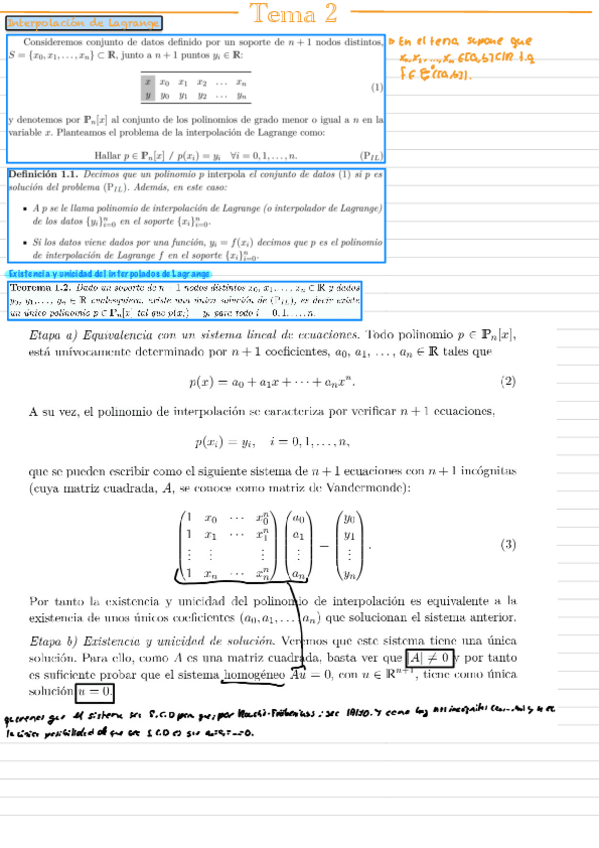 Tema 2
Interpolación de Lagrange
Consideremos conjunto de datos definido por un soporte de n + 1 nodos distintos,
S = {x₀, x₁, . . . , xₙ} ⊂ ℝ, junto a n + 1 puntos yᵢ ∈ ℝ:
x x₀ x₁ x₂ … xₙ
y y₀ y₁ y₂ … yₙ
(1)
y denotemos por ℙₙ[x] al conjunto de los polinomios de grado menor o igual a n en la
variable x. Planteamos el problema de la interpolación de Lagrange como:
Hallar p ∈ ℙₙ[x] / p(xᵢ) = yᵢ ∀i = 0, 1, . . . , n. (P_IL)
En el tema supone que
x₀, x₁, ..., xₙ ∈ [a,b] ⊂ ℝ t.q
f ∈ C⁰([a,b]).
Definición 1.1. Decimos que un polinomio p interpola el conjunto de datos (1) si p es
solución del problema (P_IL). Además, en este caso:
• A p se le llama polinomio de interpolación de Lagrange (o interpolador de Lagrange)
de los datos {yᵢ}ⁿᵢ₌₀ en el soporte {xᵢ}ⁿᵢ₌₀.
• Si los datos viene dados por una función, yᵢ = f(xᵢ) decimos que p es el polinomio
de interpolación de Lagrange f en el soporte {xᵢ}ⁿᵢ₌₀.
Existencia y unicidad del interpolados de Lagrange
Teorema 1.2. Dado un soporte de n − 1 nodos distintos x₀, x₁, . . . , xₙ ∈ ℝ y dados
y₀, y₁, . . . , yₙ ∈ ℝ cualesquiera, existe una única solución de (P_IL), es decir existe
un único polinomio p ∈ ℙₙ[x] tal que p(xᵢ) = yᵢ para todo i = 0, 1, . . . , n.
Etapa a) Equivalencia con un sistema lineal de ecuaciones. Todo polinomio p ∈ ℙₙ[x],
está unívocamente determinado por n + 1 coeficientes, a₀, a₁, . . . , aₙ ∈ ℝ tales que
p(x) = a₀ + a₁x + · · · + aₙxⁿ. (2)
A su vez, el polinomio de interpolación se caracteriza por verificar n + 1 ecuaciones,
p(xᵢ) = yᵢ, i = 0, 1, . . . , n,
que se pueden escribir como el siguiente sistema de n + 1 ecuaciones con n + 1 incógnitas
(cuya matriz cuadrada, A, se conoce como matriz de Vandermonde):
1 x₀ ⋯ x₀ⁿ a₀ y₀
1 x₁ ⋯ x₁ⁿ a₁ = y₁
⋮ ⋮ ⋮ ⋮ ⋮ . (3)
1 xₙ ⋯ xₙⁿ aₙ yₙ
Por tanto la existencia y unicidad del polinomio de interpolación es equivalente a la
existencia de unos únicos coeficientes (a₀, a₁, . . . , aₙ) que solucionan el sistema anterior.
Etapa b) Existencia y unicidad de solución. Veremos que este sistema tiene una única
solución. Para ello, como A es una matriz cuadrada, basta ver que |A| ≠ 0 y por tanto
es suficiente probar que el sistema homogéneo Au = 0, con u ∈ ℝⁿ⁺¹, tiene como única
solución u = 0.
queremos que el sistema sea S.C.D por Rouché-Fröbenius
la única posibilidad de que sea S.C.D es